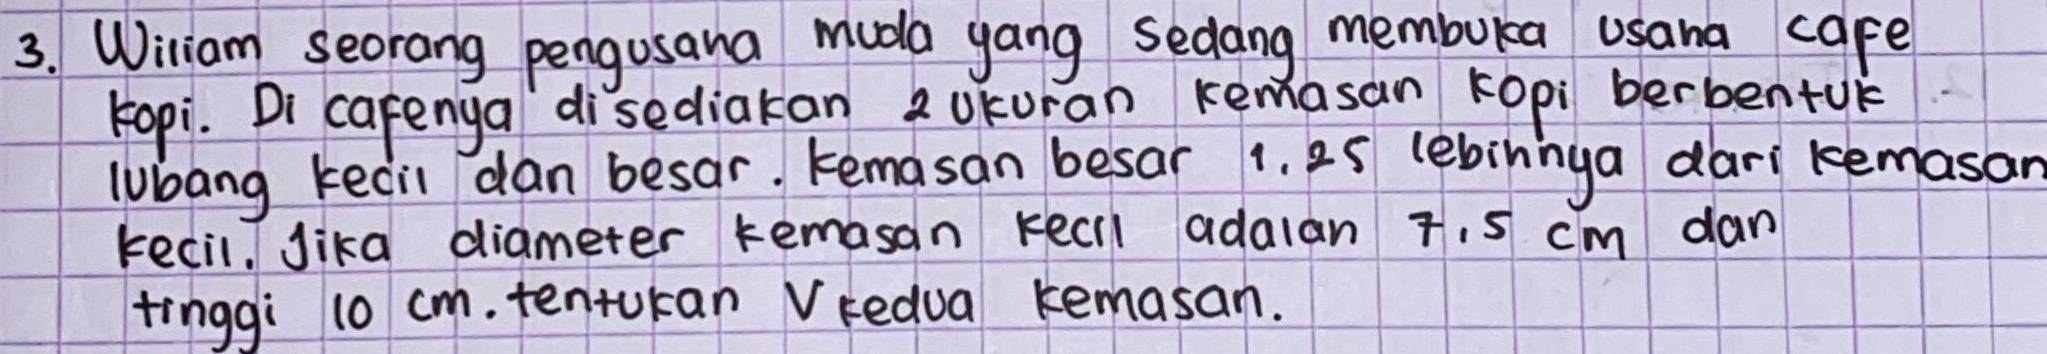 3. Wiliam seorang pengusaha muda yang sedang membuka usaha cafe
kopi. Di cafenya disediakan 2 ukuran kemasan kopi berbentuk
lubang kecil dan besar. kemasan besar 1.25 lebihnya dari kemasan
kecil. Jika diameter kemasan kecil adalah 7,5 cm dan
tinggi 10 cm. tentukan V kedua kemasan.